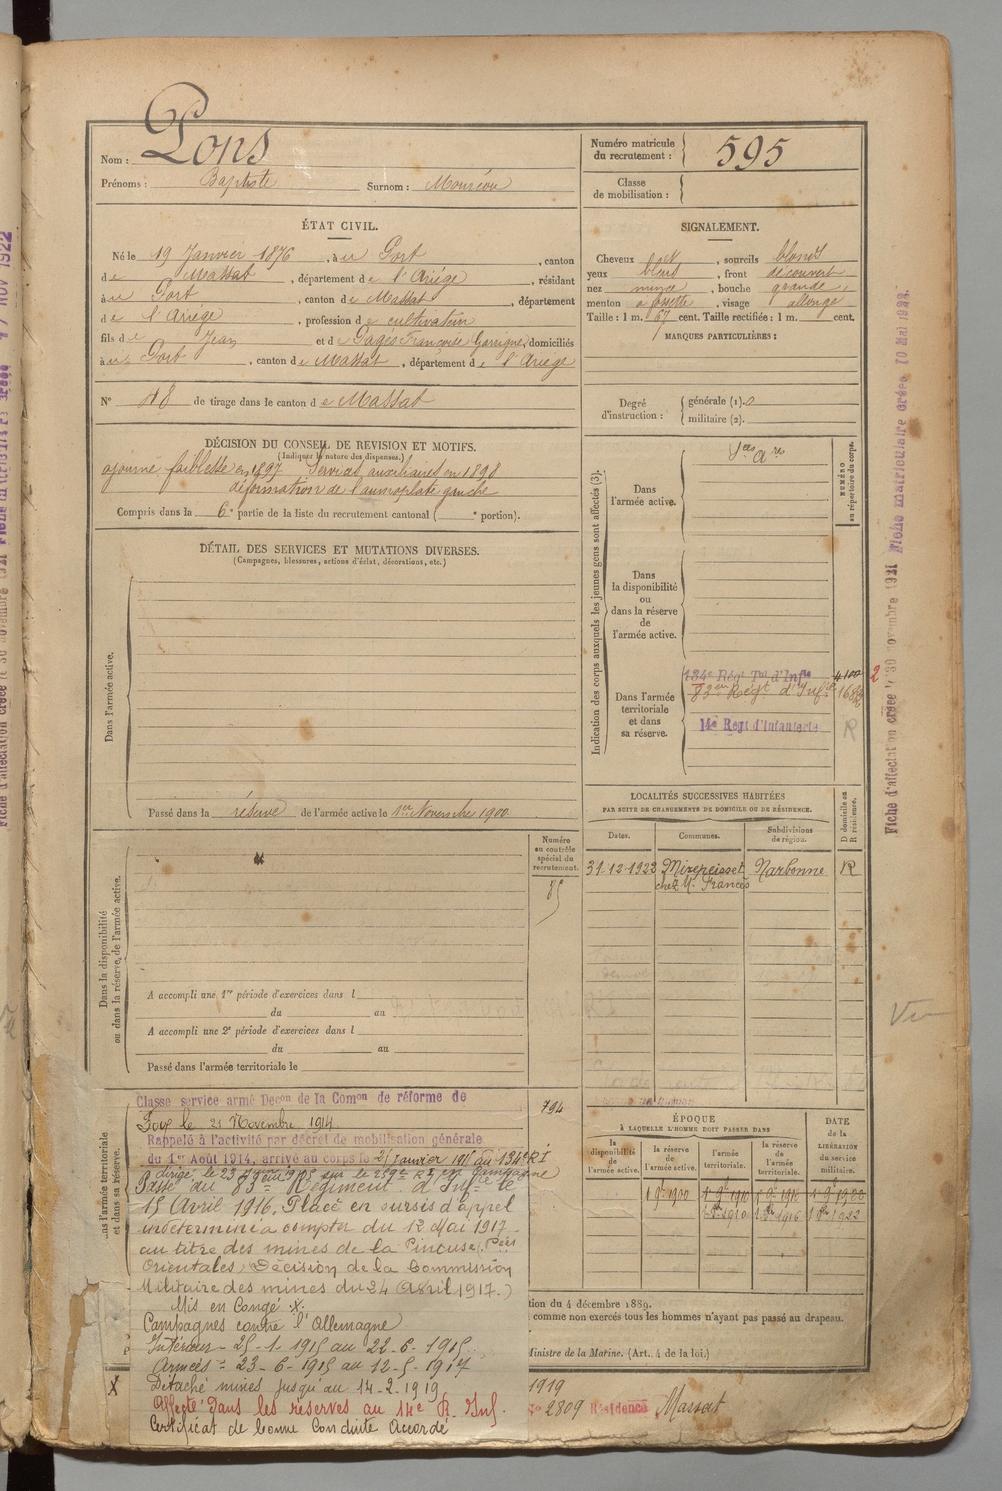 Nom : Pons
Prénoms : Baptiste Surnom : Mouréou
Numéro matricule du recrutement : 595
Classe de mobilisation :
ÉTAT CIVIL.
Né le 19 Janvier 1876, à u Port, canton
de Massat, département de l'Ariége, résidant
à u Port, canton de Massat, département
de l'Ariège, profession de cultivateur
fils de Jean et de Pagès Françoise Garrigue, domiciliés
à u Port, canton de Massat, département de l'Ariège
N° 48 de tirage dans le canton de Massat
SIGNALEMENT.
Cheveux et, sourcils blonds
yeux bleus, front découvert
nez mince, bouche grande,
menton à fossette, visage allongé
Taille : 1 m. 67 cent. Taille rectifiée : 1 m. cent.
MARQUES PARTICULIÈRES :
Degré d'instruction : générale (1). 0
militaire (2).
DÉCISION DU CONSEIL DE REVISION ET MOTIFS.
(Indiquer la nature des dispenses.)
ajourné faiblesse en 1897 Services auxiliaires en 1898
déformation de l'aumoplate gauche
Compris dans la 6e partie de la liste du recrutement cantonal ( e portion).
DÉTAIL DES SERVICES ET MUTATIONS DIVERSES.
(Campagnes, blessures, actions d'éclat, décorations, etc.)
Dans l'armée active.
Passé dans la réserve de l'armée active le 1er Novembre 1900
Indication des corps auxquels les jeunes gens sont affectés (3).
NUMÉRO au répertoire du corps.
Dans l'armée active.
Sces ares
Dans la disponibilité ou dans la réserve de l'armée active.
Dans l'armée territoriale et dans sa réserve.
134e Régt Tal d'Infie 4100 2
83eme Régt d'Infie 168
14e Regt d'Infanterie R
LOCALITÉS SUCCESSIVES HABITÉES
PAR SUITE DE CHANGEMENTS DE DOMICILE OU DE RÉSIDENCE.
Dates. Communes. Subdivisions de région. D domicile ou R résidence.
31-12-1923 Mirepeisset Narbonne R
chez M. Francès
Dans la disponibilité ou dans la réserve de l'armée active.
Numéro au contrôle spécial du recrutement.
85
A accompli une 1re période d'exercices dans l
du au
A accompli une 2e période d'exercices dans l
du au
Passé dans l'armée territoriale le
ns l'armée territoriale et dans sa réserve.
794
Classe service armé Decon de la Comon de réforme de
Foix le 21 Novembre 1914.
Rappelé à l'activité par décret de mobilisation générale
du 1er Août 1914, arrivé au corps le 25 Janvier 1915 au 134e RI
dirigé le 23 Juin 1915 sur le 259e RI en campagne
Passé au 83e Régiment d'Infie le
15 Avril 1916. Placé en sursis d'appel
indéterminé à compter du 12 Mai 1917
au titre des mines de la Pinouse (Pées
Orientales) Décision de la Commission
Militaire des mines du 24 Avril 1917.)
Mis en Congé
Campagnes contre l'Allemagne
Intérieur - 25-1-1915 au 22-6-1915
Armées = 23-6-1915 au 12-5-1917
Détaché mines jusqu'au 14-2-1919
Affecté dans les réserves au 14e R. Inf.
Certificat de bonne Conduite Accordé
ÉPOQUE
À LAQUELLE L'HOMME DOIT PASSER DANS
la disponibilité de l'armée active. la réserve de l'armée active. l'armée territoriale. la réserve de l'armée territoriale. DATE de la LIBÉRATION du service militaire.
1 9e 1900 1 9e 1910 1 9e 1916 1 9e 1922
tion du 4 décembre 1889.
comme non exercés tous les hommes n'ayant pas passé au drapeau.
Ministre de la Marine. (Art. 4 de la loi.)
1919
No 2809 Résidence Massat
X
Fiche d'affectation créée le 30 novembre 1921 Fiche matriculaire créée 10 Mai 1922.